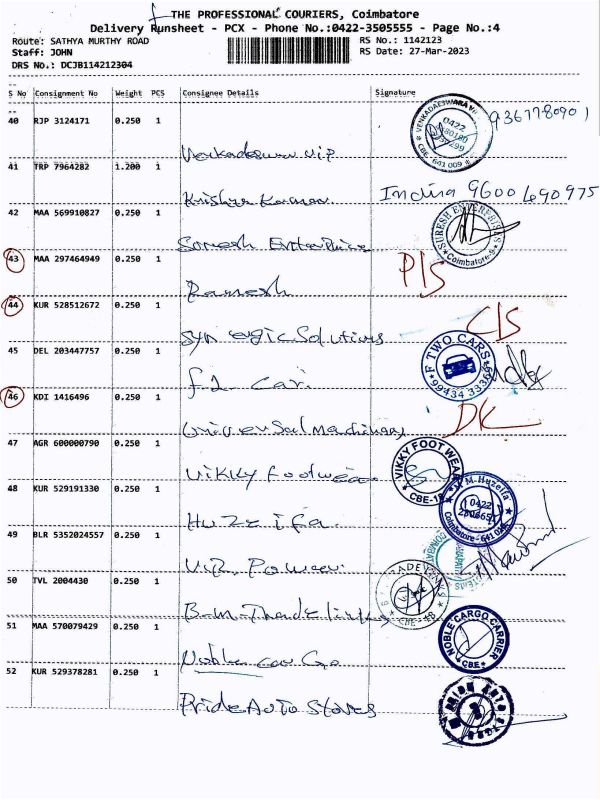 THE PROFESSIONAL COURIERS, Coimbatore
Delivery Runsheet - PCX - Phone No.:0422-3505555 - Page No.:4
Route: SATHYA MURTHY ROAD RS No.: 1142123
Staff: JOHN RS Date: 27-Mar-2023
DRS No.: DCJB114212304
S No Consignment No Weight PCS Consignee Details Signature
40 RJP 3124171 0.250 1
VENKADAESWARA 0422 CBE. 641 009
9367780901
41 TRP 7964282 1.200 1
Krishna
Indira 9600 690975
42 MAA 569910827 0.250 1
Suresh Enterprise
SURESH ENTERPRISES Coimbatore-9
43 MAA 297464949 0.250 1
Ramesh
P/S
44 KUR 528512672 0.250 1
Synergic Solutions
C/S
45 DEL 203447757 0.250 1
F2 Car
F TWO CARS 99434 33366
46 KDI 1416496 0.250 1
Universal Machinery
DK
47 AGR 600000790 0.250 1
Vikky Footwear
VIKKY FOOT WEAR CBE-18
48 KUR 529191330 0.250 1
Huzeifa
M. Huzeifa 0422 Coimbatore - 641 018
49 BLR 5352024557 0.250 1
V.R. Power
50 TVL 2004430 0.250 1
B.M. Trade Links
CBE - 18
51 MAA 570079429 0.250 1
Noble Car Go
NOBLE CARGO CARRIER C.B.E.
52 KUR 529378281 0.250 1
Pride Auto Stores